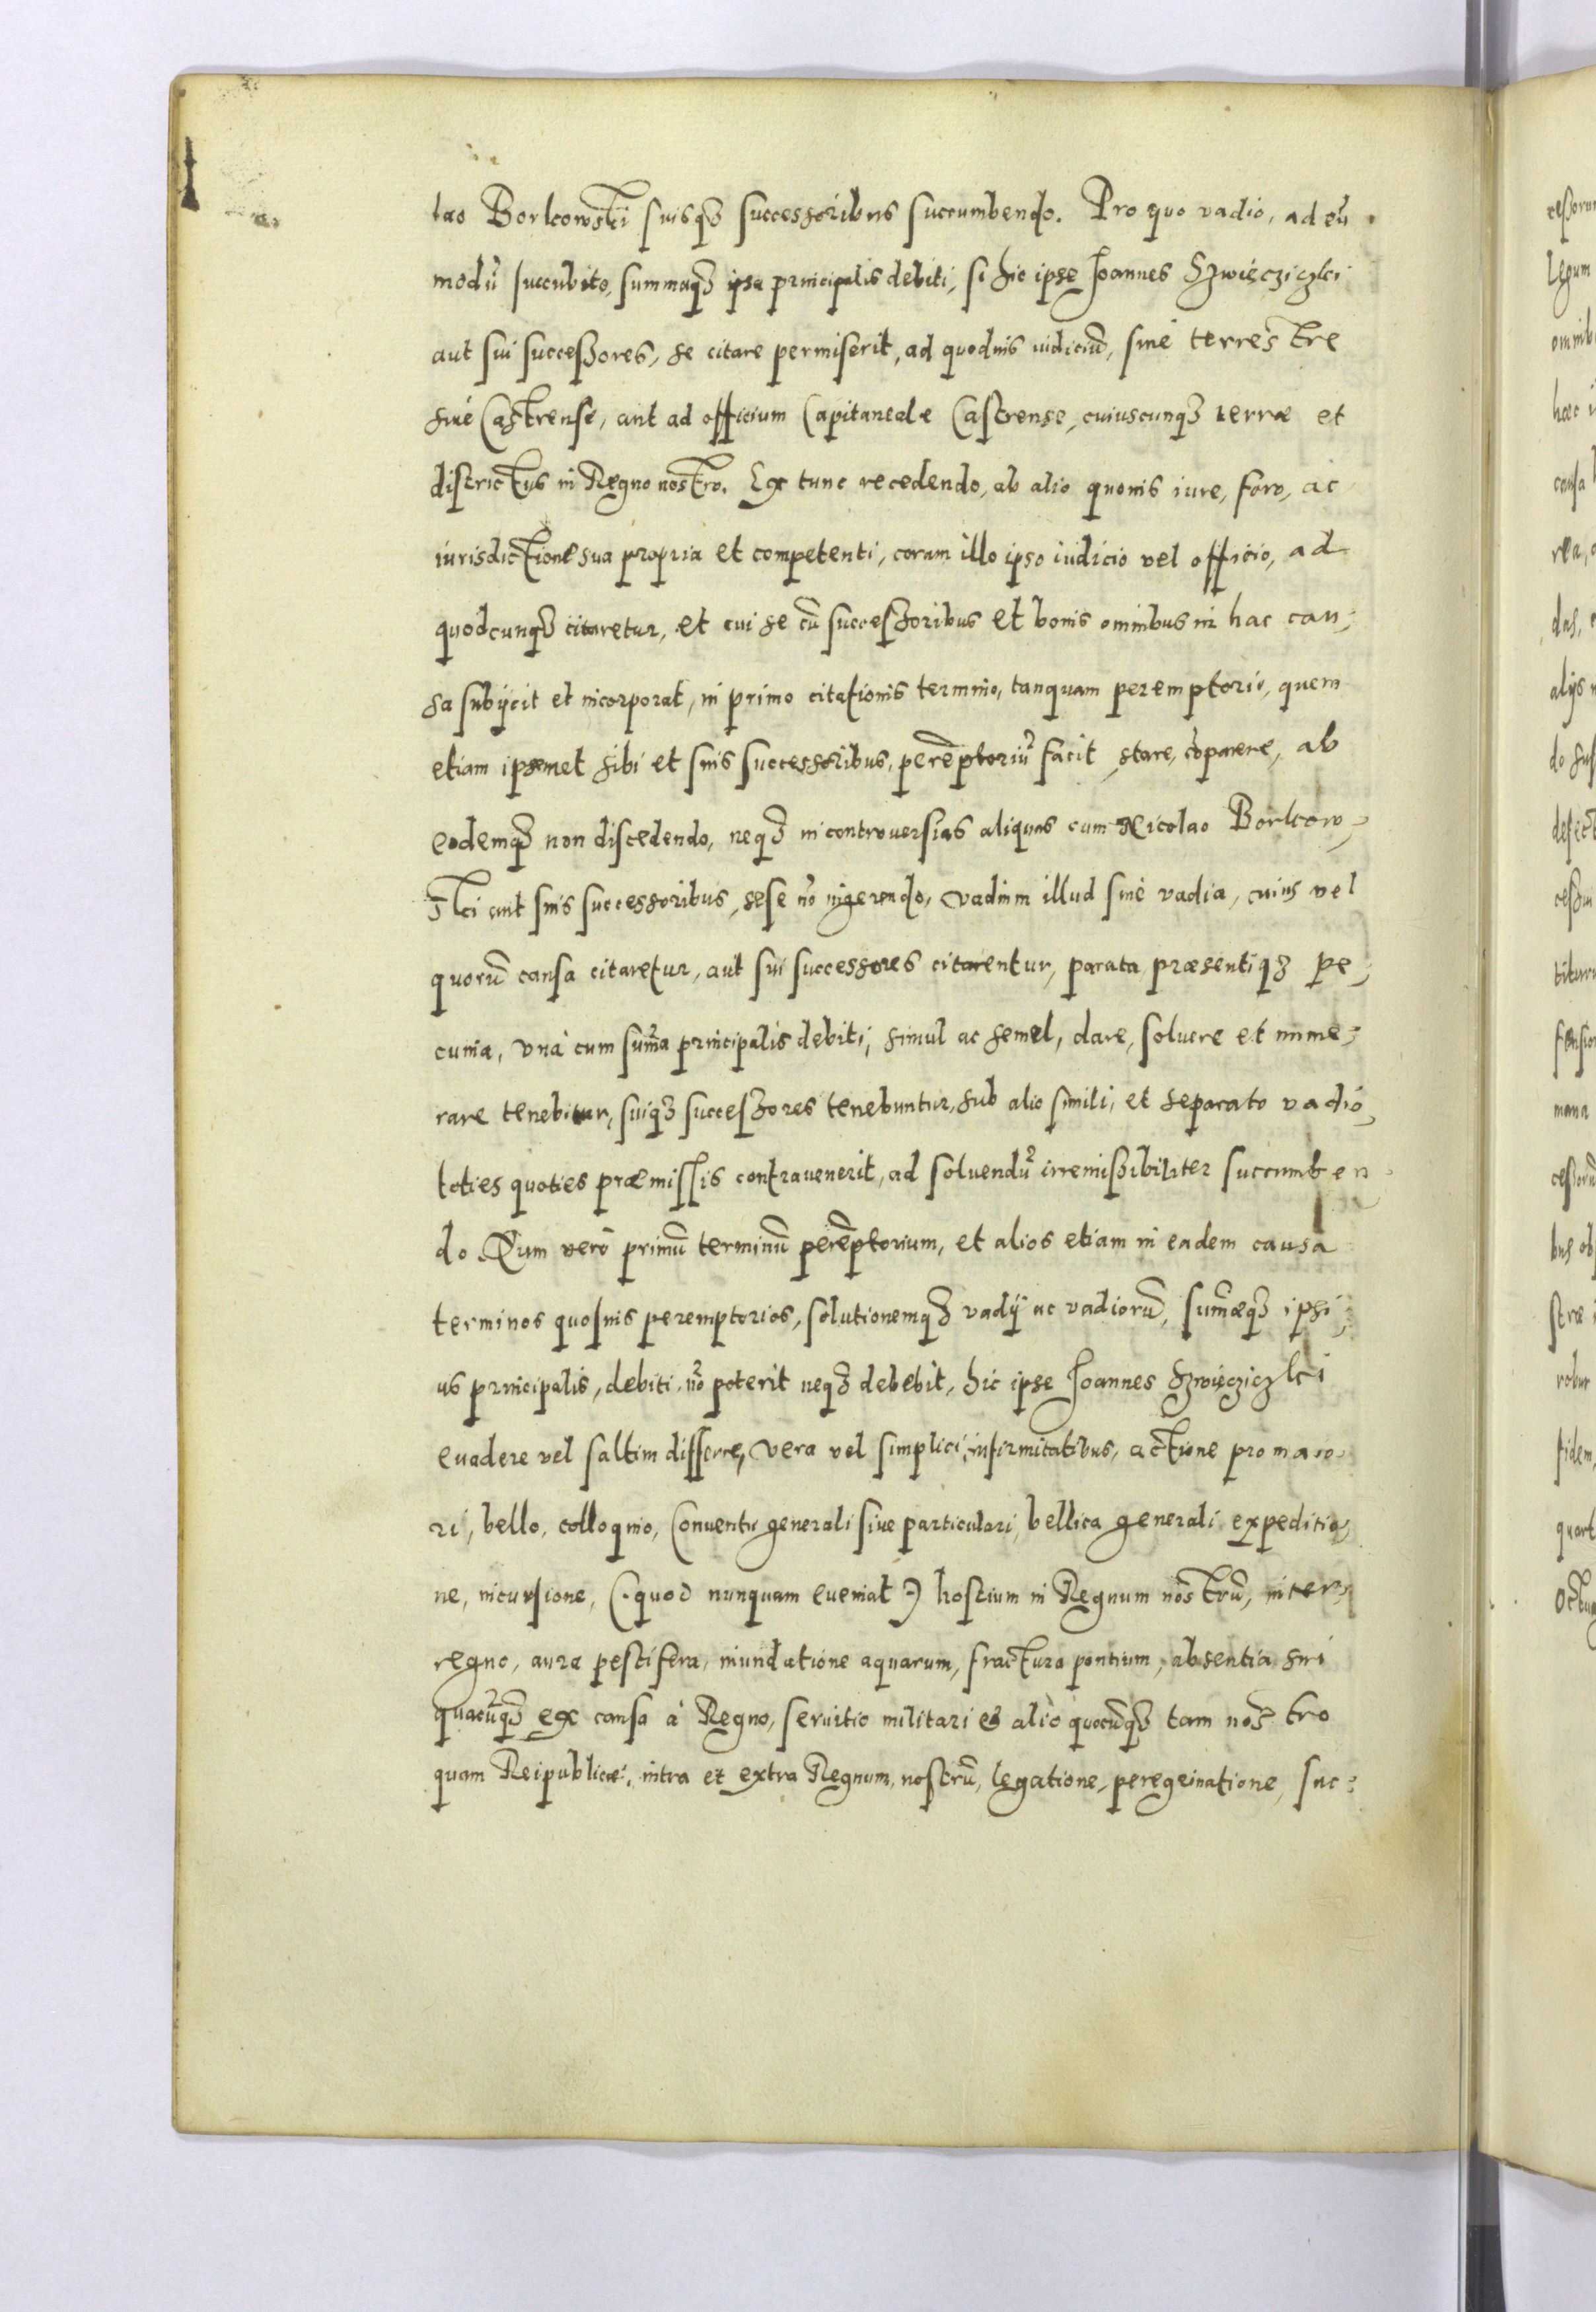 lao Borkowski suisq₃ successoribus succumbendo. Pro quo vadio, ad eū
modū succubito, summaq₃ ipsa principalis debiti, si hic ipse Joannes Szwięcziczki
aut sui successores, se citare permiserit, ad quoduis iudiciū, siue terrestre
siue Castrense, aut ad officium Capitaneale Castrense, cuiuscunq₃ terræ et
districtus in Regno nostro. Ex tunc recedendo, ab alio quouis iure, foro, ac
iurisdictione sua propria et competenti, coram illo ipso iudicio vel officio, ad
quodcunq₃ citaretur, et cui se cū successoribus et bonis omnibus in hac cau,
sa subijcit et incorporat, in primo citationis termino, tanquam peremptorio, quem
etiam ipsemet sibi et suis successoribus, perēptoriū facit, stare, cōparere, ab
eodemq₃ non discedendo, neq₃ in controuersias aliquas cum Nicolao Borkow,
ski aut suis successoribus, sese nō ingerendo, vadium illud siue vadia, cuius vel
quorū causa citaretur, aut sui successores citarentur, parata præsentiq₃ pe,
cunia, vnà cum sum̄a principalis debiti, simul ac semel, dare, soluere et nume,
rare tenebitur, suiq₃ successores tenebuntur, sub alio simili, et separato vadio,
toties quoties præmissis contrauenerit, ad soluendū irremissibiliter succumben
do. Quem verò primū terminū perēptorium, et alios etiam in eadem causa
terminos quosuis peremptorios, solutionemq₃ vadij ac vadiorū, sum̄æq₃ ipsi,
us principalis, debiti, nō poterit neq₃ debebit, hic ipse Joannes Szwięcziczki
euadere vel saltim differre, vera vel simplici, infirmitatibus, actione pro maio
ri, bello, colloquio, Conuentu generali siue particulari, bellica generali expeditio,
ne, incursione, (.quod nunquam eueniat.) hostium in Regnum nostrū, inter,
regno, aura pestifera, inundatione aquarum, fractura pontium, absentia sui
quacūq₃ ex causa à Regno, seruitio militari & alio quocūq₃ tam nostro
quam Reipublicæ, intra et extra Regnum, nostrū, legatione, peregrinatione, suc: